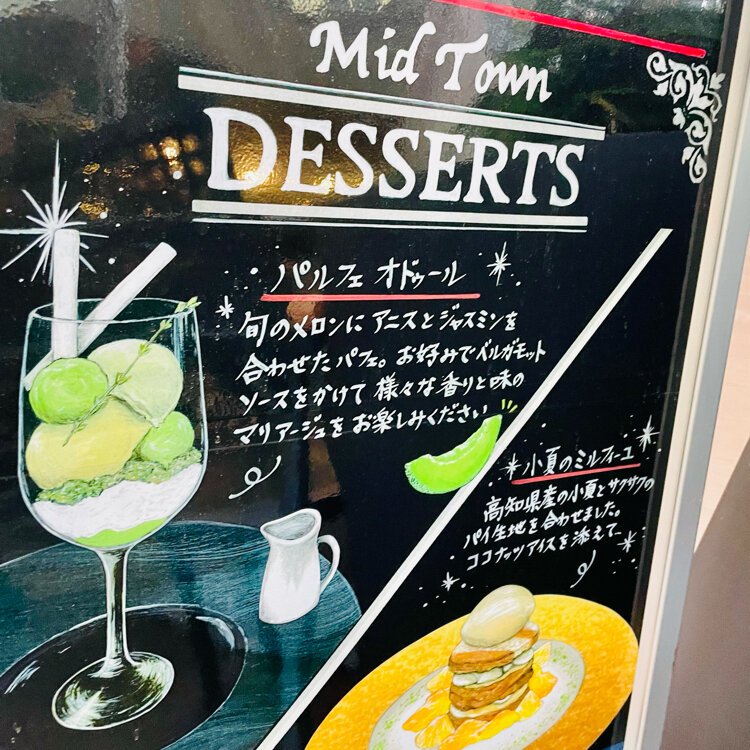 Mid Town
DESSERTS
パルフェ オドゥール
旬のメロンに アニスとジャスミンを
合わせたパフェ。お好みでベルガモット
ソースをかけて 様々な香りと味の
マリアージュをお楽しみください
小夏のミルフィーユ
高知県産の小夏とサクサクの
パイ生地を合わせました。
ココナッツアイスを添えて